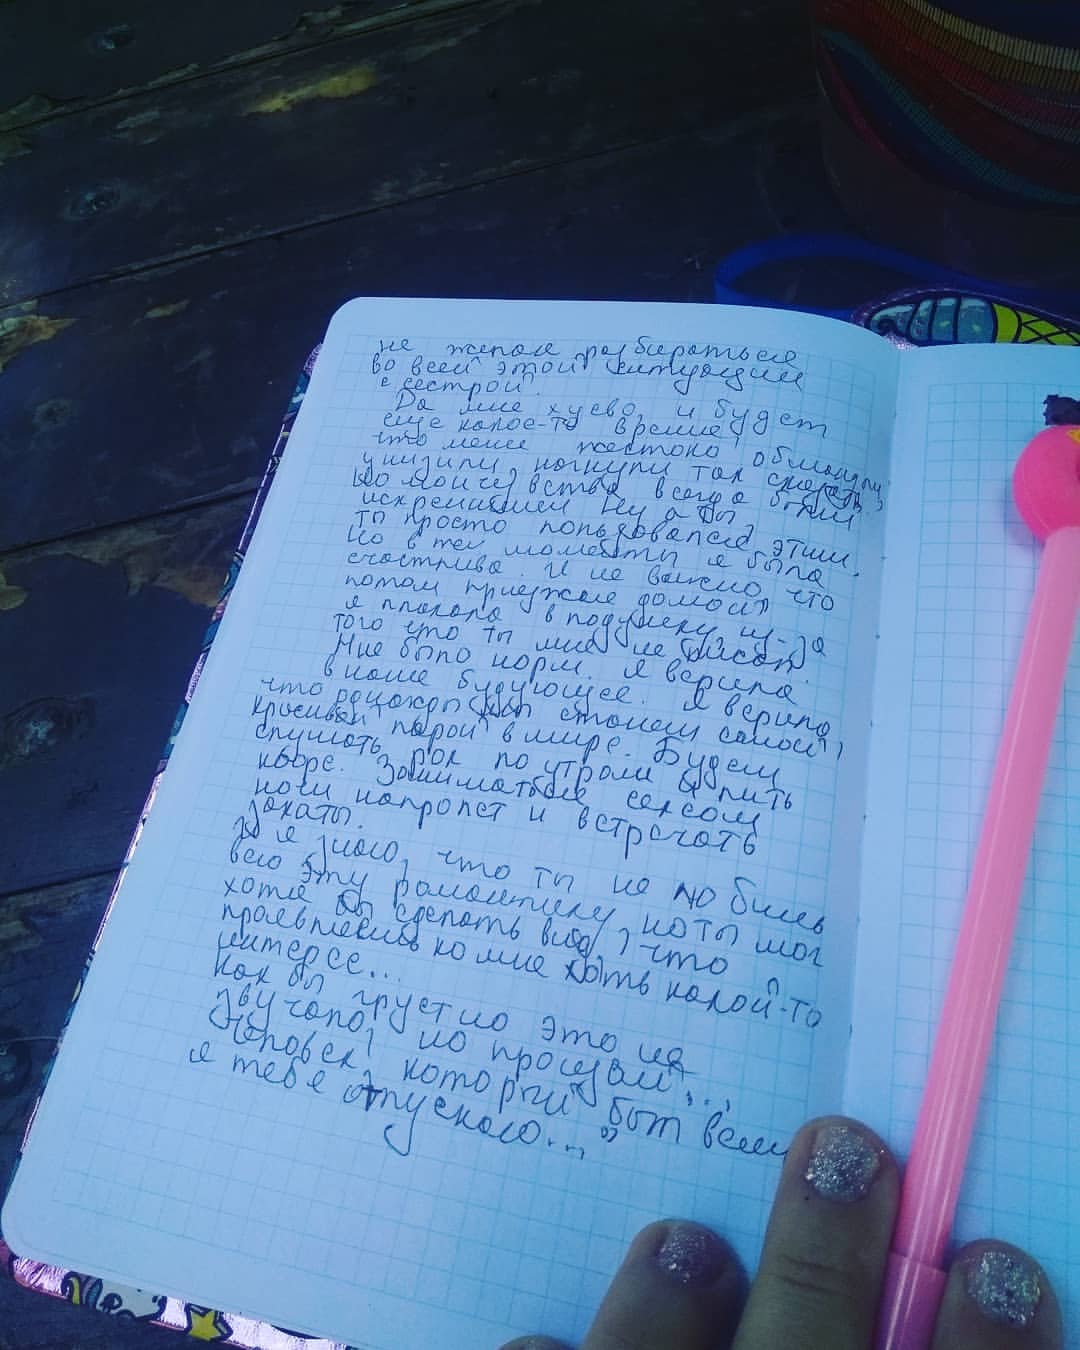 не желая разбираться
во всей этой ситуации
с сестрой.
Да мне хуево, и будет
еще какое-то время,
что меня жестоко обманули,
унизили, ногнули так сказать,
но мои чувства всегда были
искренними. Ну а ты,
ты просто пользовался этим.
Но в те моменты я была
счастлива. И не важно, что
потом приезжая домой
я плакала в подушку, из-за
того что ты мне не писал.
Мне было норм. я верила
в наше будующее. Я верила,
что однажды мы станем самой
красивой парой в мире. Будем
слушать рок по утрам и пить
кофе. Заниматься сексом
ночи напролет и встречать
закаты.
Но я знаю, что ты не любишь
всю эту романтику, но ты мог
хотя бы сделать вид, что
проявляешь ко мне хоть какой-то
интерес...
Как бы грустно это не
звучало, но прощай...,
человек, который был всем
я тебя отпускаю..."